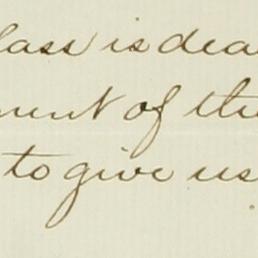 lass is dea
ment of the
to give us